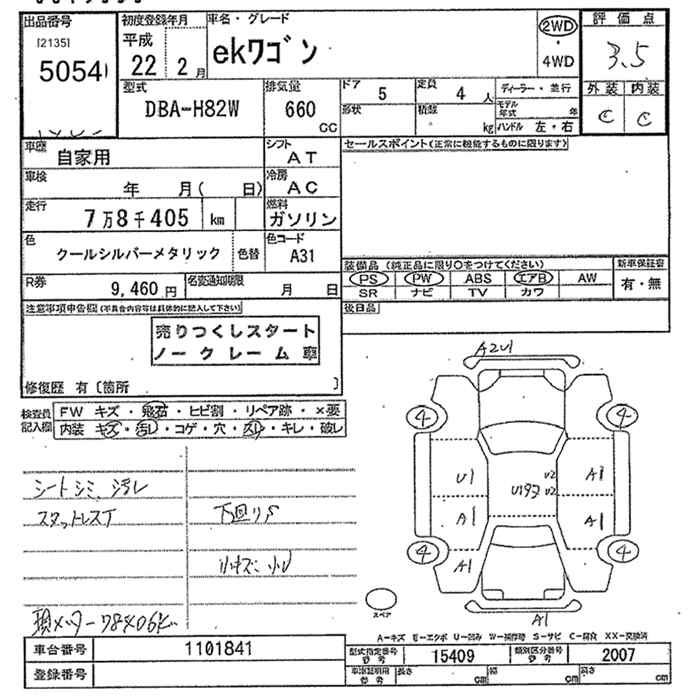 出品番号
[2135]
5054
初度登録年月
平成
22 2月
車名・グレード
ekワゴン
2WD
・
4WD
評価点
3.5
外装 内装
C C
型式
DBA-H82W
排気量
660
CC
ドア 5
形状
定員 4 人
積載 kg
ディーラー・並行
モデル年式 年
ハンドル 左・右
車歴 自家用
シフト AT
セールスポイント(正常に機能するものに限ります)
車検 年 月( 日)
冷房 AC
走行 7万8千405 km
燃料 ガソリン
色 クールシルバーメタリック 色替
色コード A31
装備品(純正品に限り○をつけてください)
PS PW ABS エアB AW
SR ナビ TV カワ
新車保証書
有・無
R券 9,460円
名変通知期限 月 日
後日品
注意事項申告欄(不具合内容等は具体的に記入して下さい)
売りつくしスタート
ノークレーム車
修復歴 有〔箇所 〕
検査員記入欄
FW キズ・飛石・ヒビ割・リペア跡・×要
内装 キズ・汚レ・コゲ・穴・スレ・キレ・破レ
シートシミ、汚レ
スタットレスT
下回りS
小キズ、小U
現メーター78406K
A2U1
4 4
U1 A1
U2
U2
A1 A1
4 4
A1
A1
スペア
A-キズ E-エクボ U-凹み W-補修跡 S-サビ C-腐食 XX-交換済
車台番号 1101841
型式指定番号 参考 15409
類別区分番号 参考 2007
登録番号
車庫証明用 参考 長さ cm 幅 cm 高さ cm